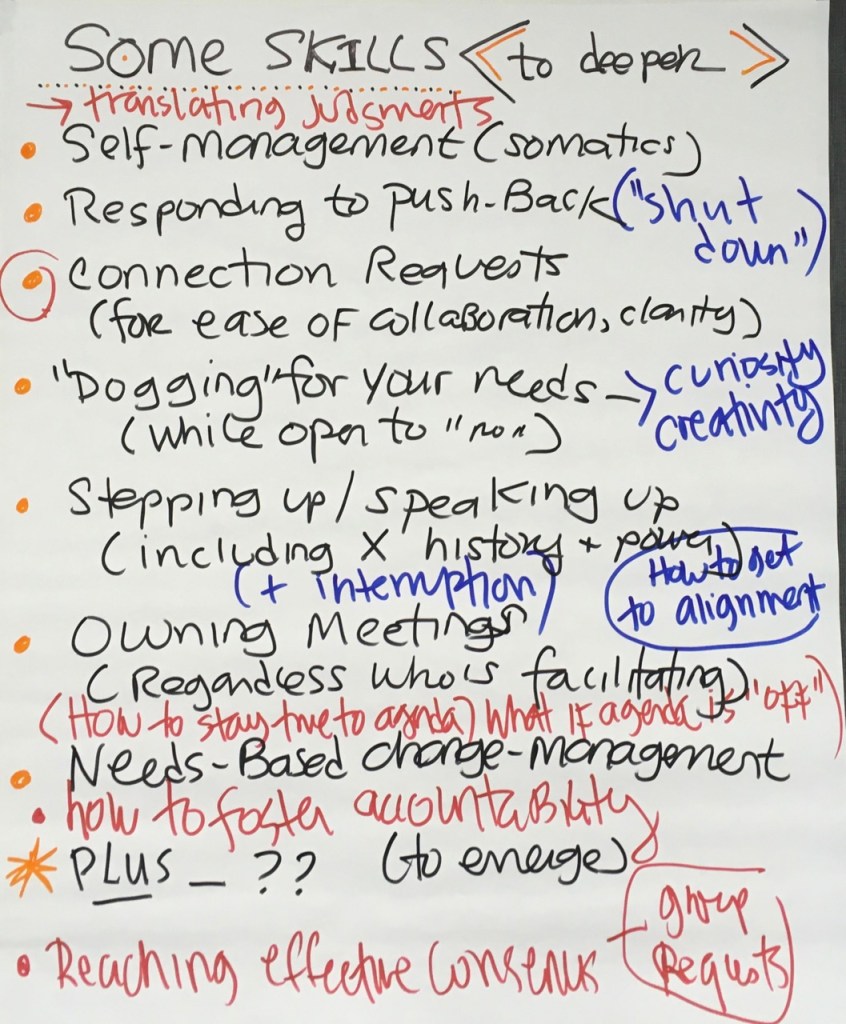 Some SKILLS <to deepen>
→ translating judgments
• Self-management (somatics)
• Responding to push-Back ("shut down")
• Connection Requests
(for ease of collaboration, clarity)
• "Dogging" for your needs → curiosity creativity
(while open to "no")
• Stepping up/speaking up
(including X history + power)
(+ interruption)
How to get to alignment
• Owning Meetings
(Regardless who is facilitating)
(How to stay true to agenda) What if agenda is "off")
• Needs-Based change-management
• how to foster accountability
* PLUS _ ?? (to emerge)
• Reaching effective Consensus - group Requests